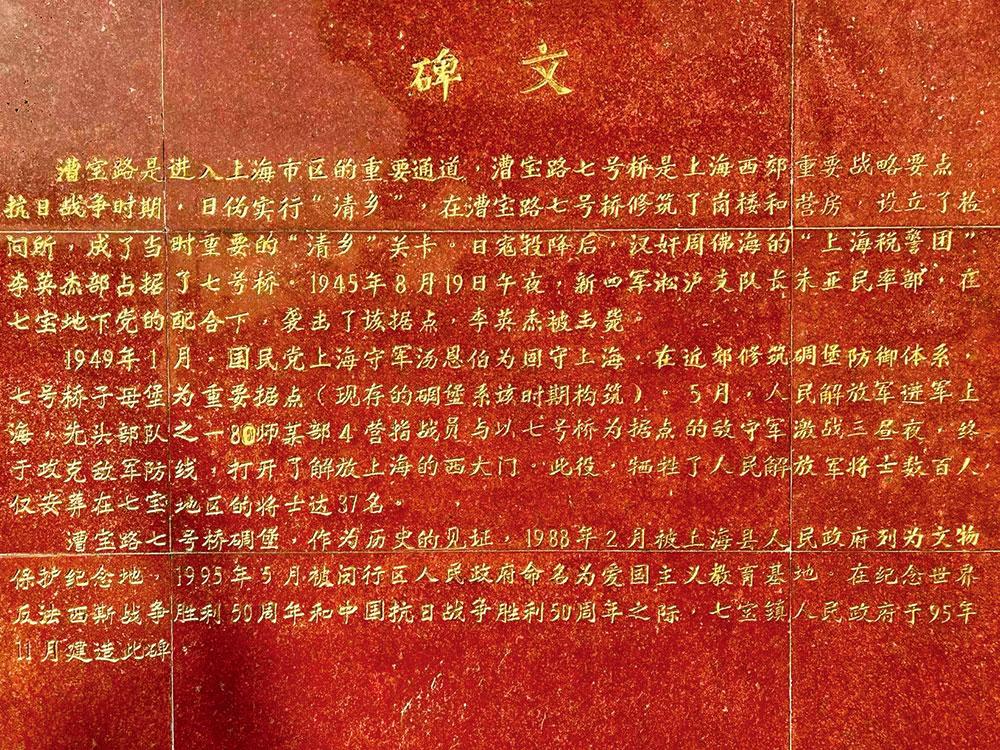 碑文
漕宝路是进入上海市区的重要通道，漕宝路七号桥是上海西郊重要战略要点。
抗日战争时期，日伪实行“清乡”，在漕宝路七号桥修筑了岗楼和营房，设立了检
问所，成了当时重要的“清乡”关卡。日寇投降后，汉奸周佛海的“上海税警团”
李英杰部占据了七号桥。1945年8月19日午夜，新四军淞沪支队长朱亚民率部，在
七宝地下党的配合下，袭击了该据点，李英杰被击毙。
1949年1月，国民党上海守军汤恩伯为固守上海，在近郊修筑碉堡防御体系，
七号桥子母堡为重要据点（现存的碉堡系该时期构筑）。5月，人民解放军进军上
海，先头部队之一80师某部4营指战员与以七号桥为据点的敌守军激战三昼夜，终
于攻克敌军防线，打开了解放上海的西大门。此役，牺牲了人民解放军将士数百人，
仅安葬在七宝地区的将士达37名。
漕宝路七号桥碉堡，作为历史的见证，1988年2月被上海县人民政府列为文物
保护纪念地，1995年5月被闵行区人民政府命名为爱国主义教育基地 在纪念世界
反法西斯战争胜利50周年和中国抗日战争胜利50周年之际，七宝镇人民政府于95年
11月建造此碑。